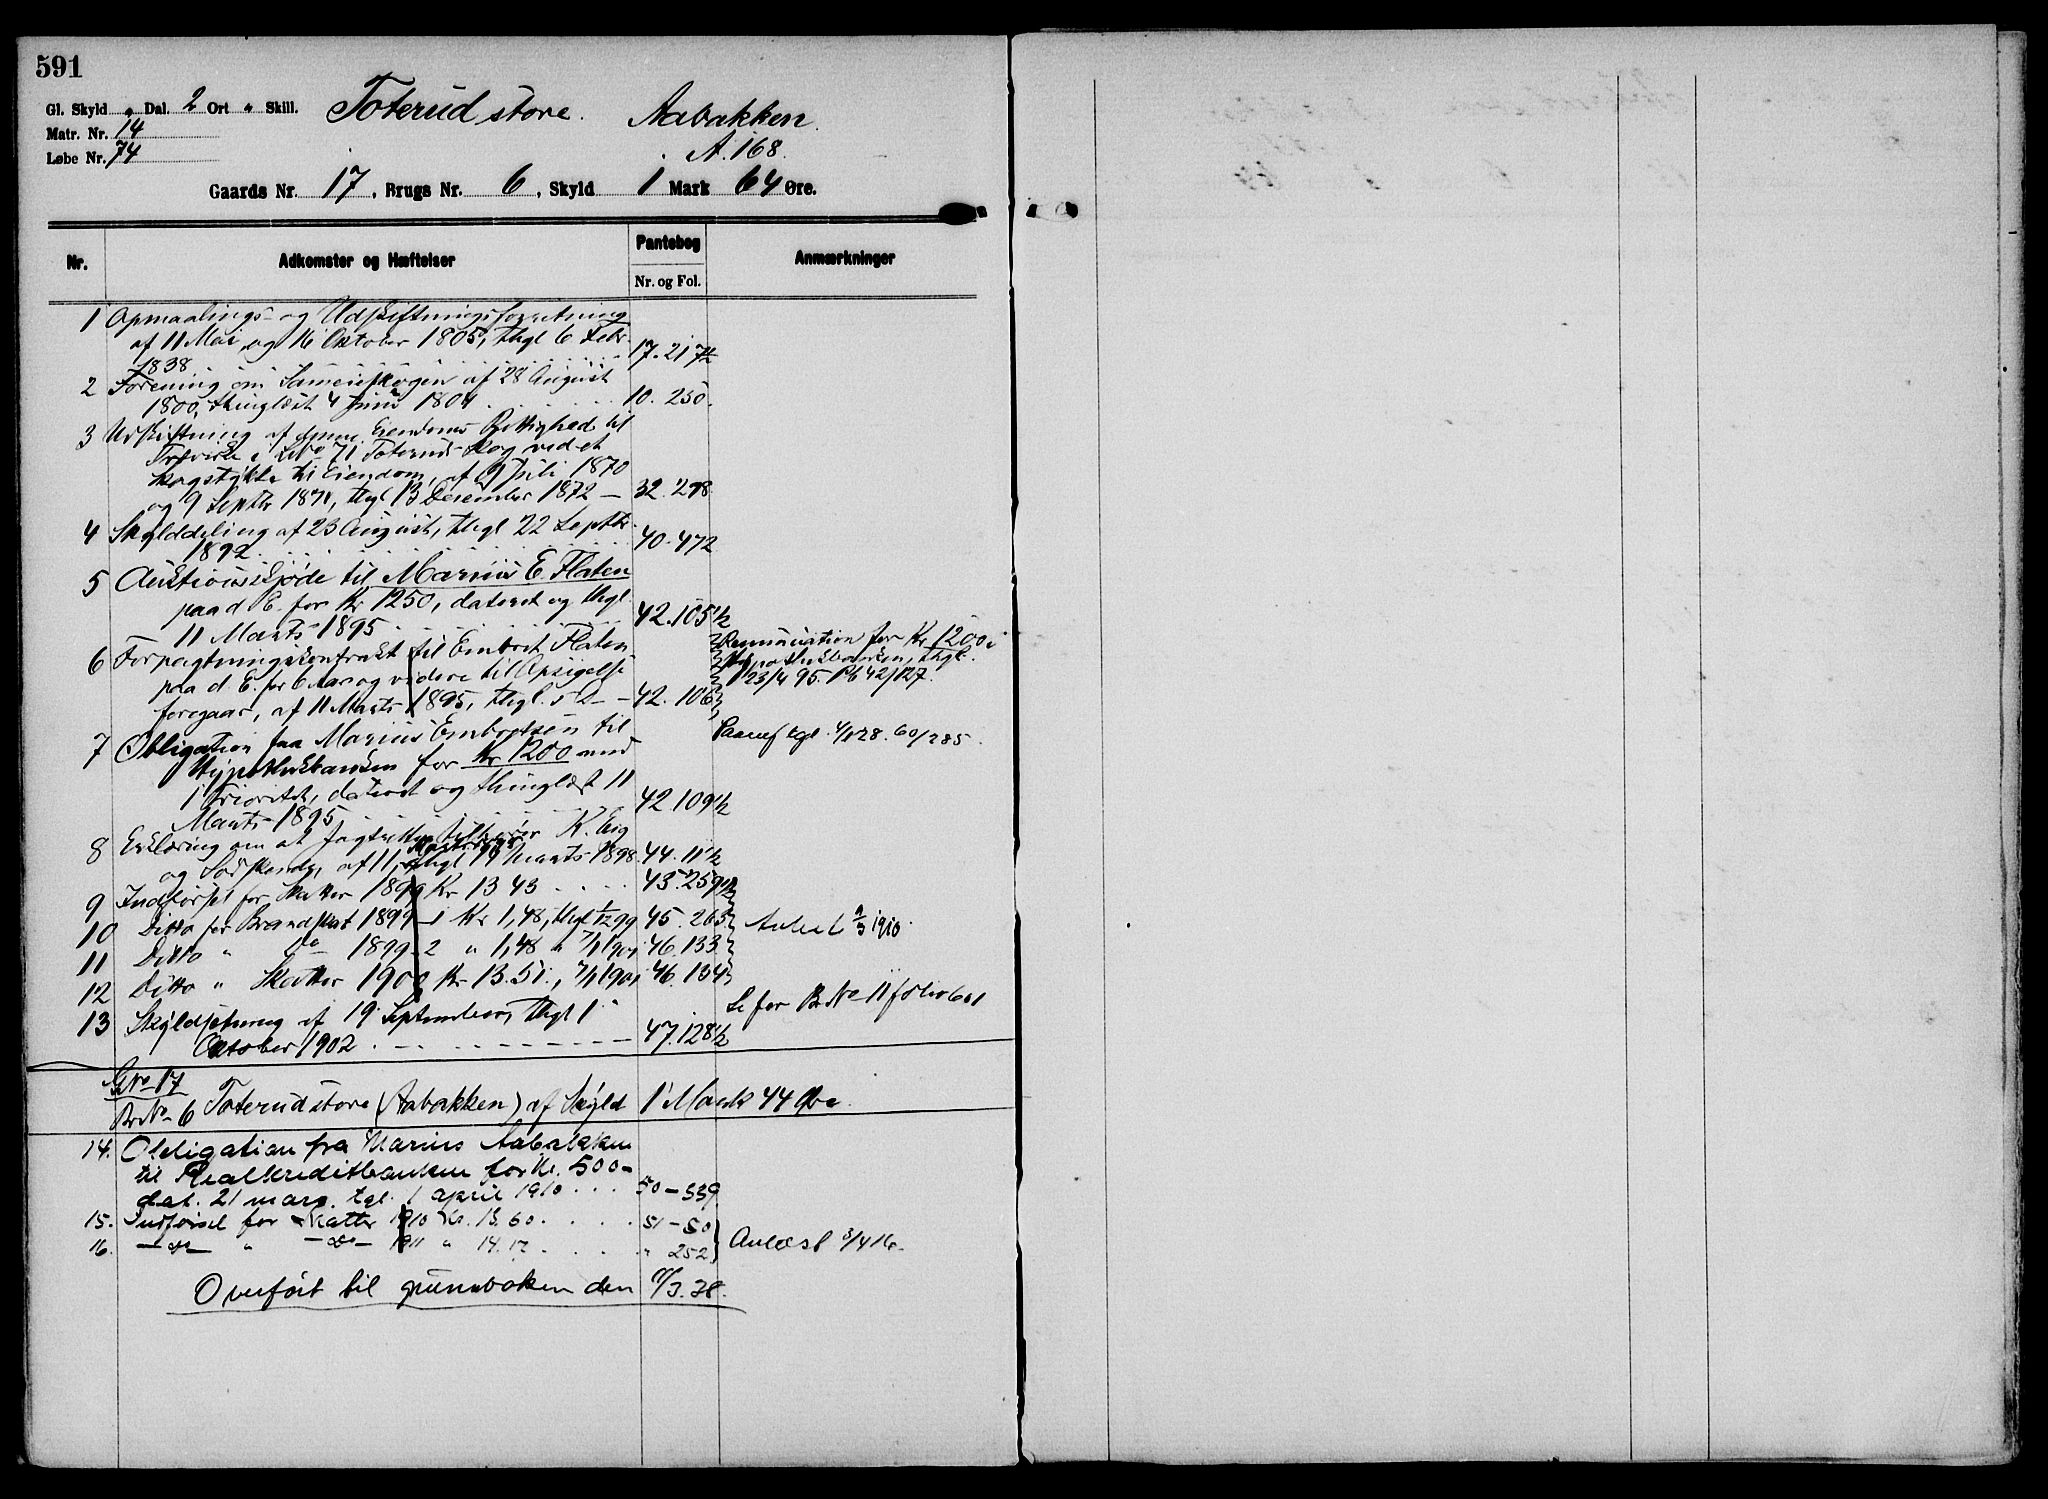 591
Gl. Skyld „ Dal. 2 Ort „ Skill. Toterud store. Aabakken.
Matr. Nr. 14 A. 168.
Løbe Nr. 74
Gaards Nr. 17, Brugs Nr. 6, Skyld 1 Mark 64 Øre.
Nr. Adkomster og Hæftelser Pantebog Nr. og Fol. Anmærkninger
1 Opmaalings- og Udskiftningsforretning
af 11 Mai og 16 Oktober 1805, thgl 6 Febr.
1838 17. 217½
2 Forening om Sameieskogen af 28 August
1800, thinglæst 4 Juni 1804 10. 250.
3 Udskiftning af denne Eiendoms Rettighed til
i LNo 71 Toteruds Skog ved et
Skogstykke til Eiendom, af 9 Juli 1870
og 9 Septbr 1871, thgl 13 December 1872 — 32. 298
4 Skylddeling af 23 August, thgl 22 Septbr.
1892. 40. 472
5 Auktionsskjøde til Marius E. Flaten
paa d. E. for Kr 1250, dateret og thgl.
11 Marts 1895 42. 105½
6 Forpagtningskontrakt til Embret Flaten
paa d. E. for 6 Aar og videre til Opsigelse
foregaar, af 11 Marts 1895, thgl. s. D. — 42. 106
Renunciation for Kr 1200 i
Hypothekbanken, thgl.
23/4 95. Pb 42/127.
7 Obligation fra Marius Embretsen til
Hypothekbanken for Kr 1200 med
1 Prioritet, dateret og thinglæst 11
Marts 1895 42. 109½
tgl. 60/285.
8 Erklæring om at Jagtretten tilhører K. Eig
og Sødskende, af 11, thgl 19 Marts 1898 44. 11½
9 Indførsel for Skatter 1899 Kr 13 43 45. 259½
10 Ditto for Brandskat 1899 — 1 Kr 1,48, thgl 1/12 99 45. 265
11 Ditto „ Do 1899. 2 „ 1,48 „ 7/1 1901 46. 133
12 Ditto „ Skatter 1900 Kr 13.51., 7/1 1901 46. 134
1910.
13 Skyldsetning af 19 September, thgl 1
October 1902 47. 128½
Se for BrNo 11 folio 601
GNo 17
BrNo 6 Toterud store (Aabakken) af Skyld 1 Mark 44 Øre.
14. Obligation fra Marius Aabakken
til Realkreditbanken for Kr. 500-
dat. 21 mars. tgl. 1 april 1910 50 — 339
15. Indførsel for Skatter 1910 Kr. 13.60. 51 — 50
16. — do — „ — do — 1911 „ 14.17 „ 252
Avlæst 3/4 16.
Overført til grunnboken den /3.38.